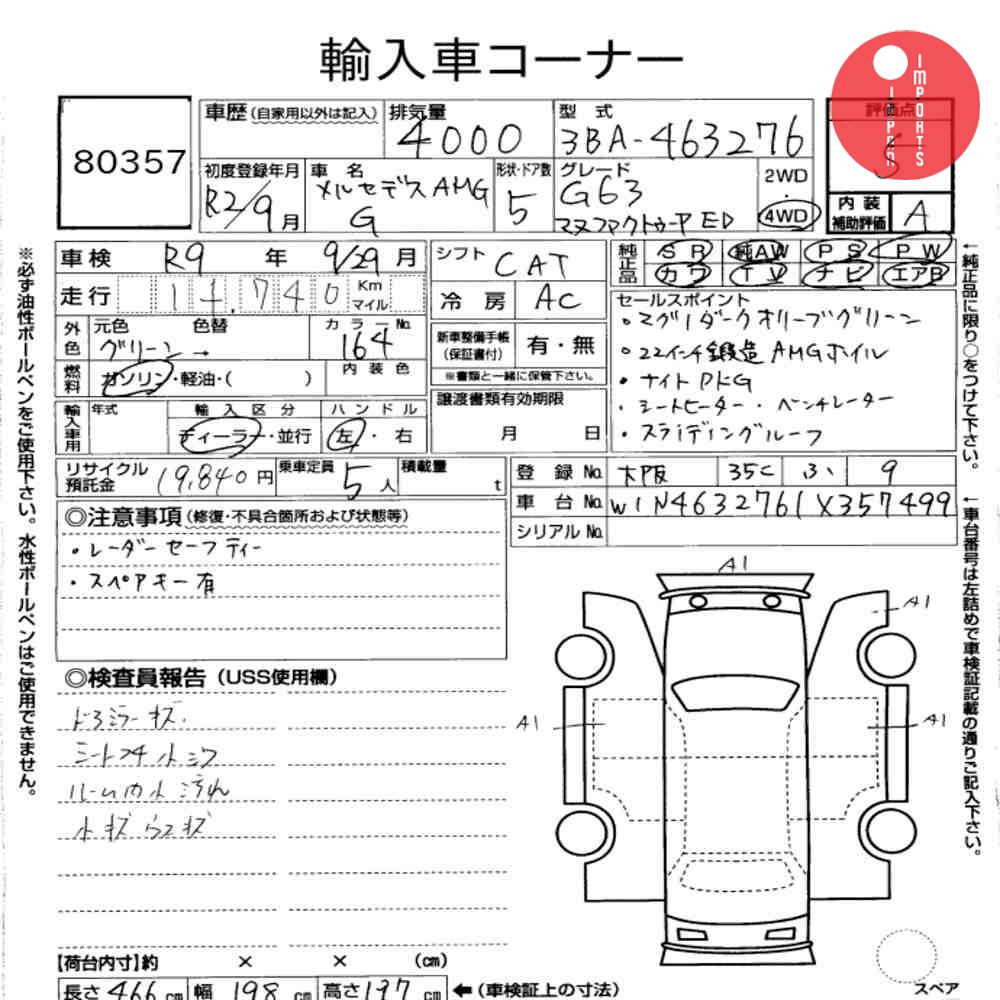 輸入車コーナー
IMPORTS
IIPPAN
80357
車歴(自家用以外は記入)
排気量
4000
型 式
3BA-463276
評価点
5
初度登録年月
R2/9月
車 名
メルセデスAMG
G
形状・ドア数
5
グレード
G63
マヌファクトゥーアED
2WD
・
4WD
内装
補助評価
A
車検 R9 年 9/29月
シフト CAT
純正品
SR 純AW PS PW
カワ TV ナビ エアB
走行 11,740 Km マイル
冷房 AC
外色
元色 色替
グリーン→
カラーNo.
164
新車整備手帳
(保証書付)
有・無
※書類と一緒に保管下さい。
セールスポイント
・マグノダークオリーブグリーン
・22インチ鍛造AMGホイル
・ナイトPKG
・シートヒーター・ベンチレーター
・スライディングルーフ
燃料
ガソリン・軽油・( )
内装色
輸入車用
年式
輸入区分
ディーラー・並行
ハンドル
左・右
譲渡書類有効期限
月 日
リサイクル
預託金
19,840円
乗車定員
5人
積載量
t
登録No. 大阪 35C ふ 9
車台No. W1N4632761X357499
シリアルNo.
◎注意事項(修復・不具合箇所および状態等)
・レーダーセーフティー
・スペアキー有
◎検査員報告(USS使用欄)
ドアミラーキズ.
シート スレ 小シワ
ルーム内小汚れ
小キズ ウスキズ
A1
A1
A1
A1
【荷台内寸】約 × × (cm)
長さ466cm 幅198cm 高さ197cm ←(車検証上の寸法)
スペア
※必ず油性ボールペンをご使用下さい。水性ボールペンはご使用できません。
←純正品に限り○をつけて下さい。
←車台番号は左詰めで車検証記載の通りご記入下さい。